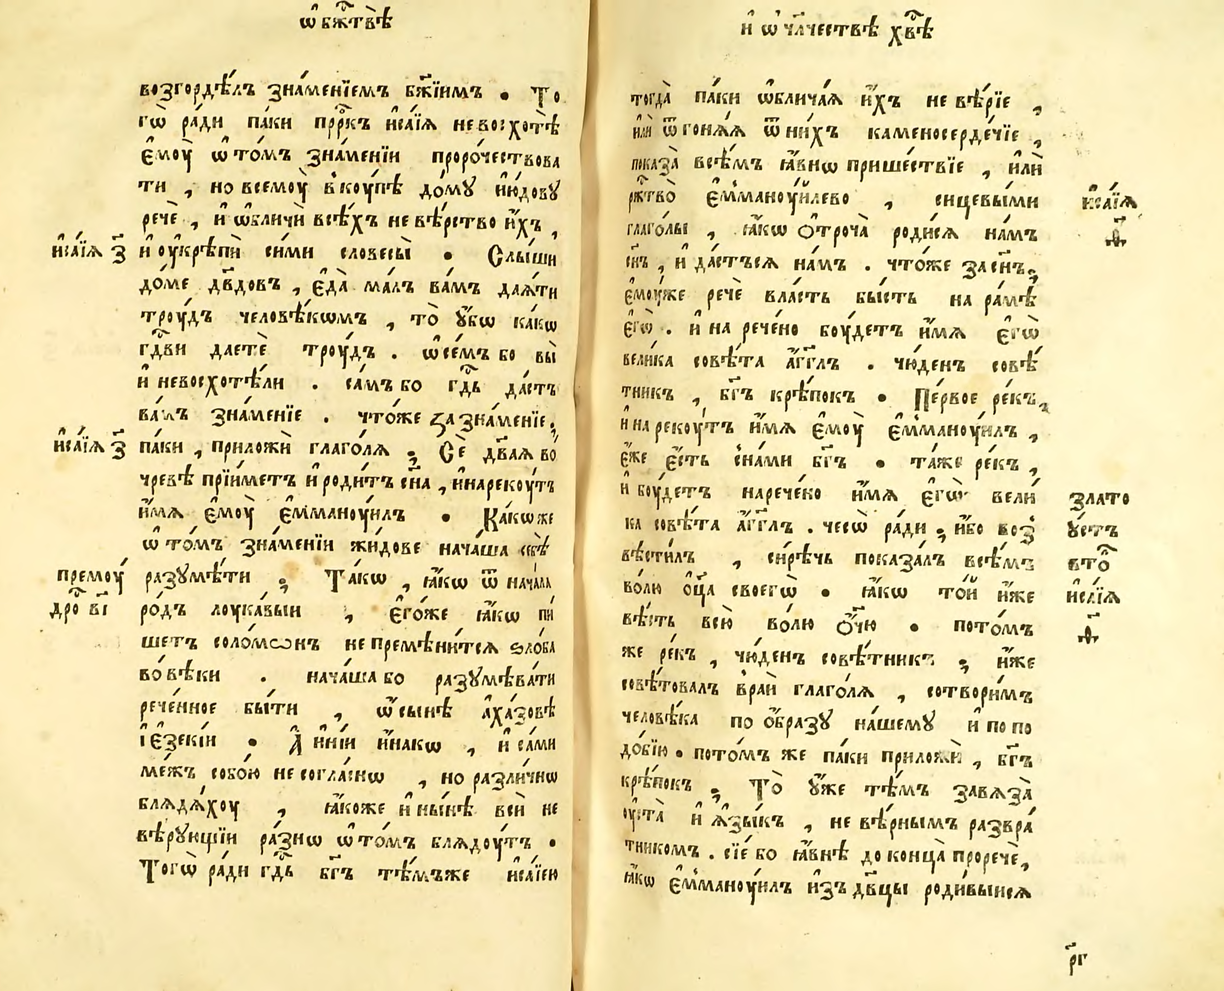 ѡ҆ бж҃твѣ
возгордѣ́лъ зна́менїемъ бж҃їимъ . То
гѡ̀ ра́ди па́ки прⷪ҇ркъ и҆са́їѧ невосхотѣ̀
є҆мꙋ̀ ѡ҆ то́мъ зна́менїи проро́чествова
ти , но всемꙋ̀ вкꙋ́пѣ до́мꙋ и҆ю́довꙋ
речѐ , и҆ ѡ҆бличѝ всѣ́хъ невѣ́рство и҆́хъ ,
и҆са́їѧ з҃
и҆ ᲂу҆крѣпѝ си́ми словесы̀ . Слы́ши
до́ме дв҃довъ , є҆да̀ ма́лъ ва́мъ даѧ́ти
трꙋ́дъ человѣ́кѡмъ , то̀ ᲂу҆́бѡ ка́кѡ
гдⷭ҇ви даетѐ трꙋ́дъ . ѡ҆ се́мъ бо вы̀
и҆ невосхотѣ́ли . са́мъ бо гдⷭ҇ь да́стъ
ва́мъ зна́менїе . что́же за зна́менїе;
и҆са́їѧ з҃
па́ки , приложѝ глаго́лѧ ; Сѐ дв҃аѧ во
чре́вѣ прїи́метъ и҆ роди́тъ сн҃а , и҆ нареку́тъ
и҆́мѧ є҆мꙋ̀ є҆мманꙋ́илъ . Ка́кѡже
ѡ҆ то́мъ зна́менїи жи́дове нача́ша себѣ̀
премꙋ́
разꙋмѣ́ти ; Та́кѡ , ꙗ҆́кѡ ѿ нача́ла
дро вı҃
ро́дъ лꙋка́выи , є҆го́же ꙗ҆́кѡ пи́
шетъ соломѡ́нъ не премѣни́тсѧ ѕло́ба
во́вѣки . нача́ша бо разꙋмѣва́ти
рече́нное бы́ти , ѡ҆ сы́нѣ а҆ха́зовѣ
і҆є҆зекі́и . А҆ и҆ні́и и҆́накѡ , и҆ са́ми
ме́жъ собо́ю несогла́снѡ , но разли́чнѡ
блѧдѧ́хꙋ , ꙗ҆́коже и҆ ны́нѣ всѝ не
вѣ́рꙋющїи ра́знѡ ѡ҆ то́мъ блѧдꙋ́тъ .
Тогѡ̀ ра́ди гдⷭ҇ь бг҃ъ тѣ́мъже и҆са́їею
и҆ ѡ҆ чл҃честве хв҃ѣ
тогда̀ па́ки ѡ҆блича́ѧ и҆́хъ невѣ́рїе ,
и҆лѝ ѿгонѧ́ѧ ѿ ни́хъ каменосерде́чїе ,
показа̀ всѣ́мъ ꙗ҆́внѡ прише́ствїе , и҆лѝ
ржⷭ҇тво̀ є҆мманꙋ́илево , сицевы́ми
и҆са́їѧ
ѳ҃
глаго́лы , ꙗ҆́кѡ ѻ҆троча̀ роди́сѧ на́мъ
сн҃ъ , и҆ да́стьсѧ на́мъ . что́же за сн҃ъ;
є҆мꙋ́же речѐ вла́сть бы́сть на ра́мѣ
є҆гѡ̀ . и҆ нарече́но бꙋ́детъ и҆́мѧ є҆гѡ̀
вели́ка совѣ́та а҆́гг҃лъ . чю́денъ совѣ́
тникъ , бг҃ъ крѣ́покъ . Пе́рвое ре́къ,
и҆ нареку́тъ и҆́мѧ є҆мꙋ̀ є҆мманꙋ́илъ ,
є҆́же є҆́сть сна́ми бг҃ъ . та́же ре́къ ,
и҆ бꙋ́детъ нарече́но и҆́мѧ є҆гѡ̀ вели́
злато
ка совѣ́та а҆́гг҃лъ . чесѡ̀ ра́ди ; и҆́бо воз
ᲂу҆́стъ
вѣсти́лъ , си́рѣчь показа́лъ всѣ́мъ
вто
во́лю ѻ҆ц҃а̀ своегѡ̀ . ꙗ҆́кѡ то́й и҆́же
и҆са́їѧ
ѳ҃
вѣ́сть всю̀ во́лю ѻ҆́ч҃ю . пото́мъ
же ре́къ , чю́денъ совѣ́тникъ ; и҆́же
совѣ́товалъ вра́й глаго́лѧ , сотвори́мъ
человѣ́ка по ѻ҆́бразꙋ на́шемꙋ и҆ по по
до́бїю . пото́мъ же па́ки приложѝ , бг҃ъ
крѣ́покъ ; То̀ ᲂу҆же тѣ́мъ завѧза̀
ᲂу҆ста̀ и҆ ѧ҆зы́къ , невѣ́рнымъ развра́
тникомъ . сїе́ бо ꙗ҆́внѣ до конца̀ проречѐ,
ꙗ҆́кѡ є҆мманꙋ́илъ и҆зъ дв҃цы роди́выисѧ
рг҃